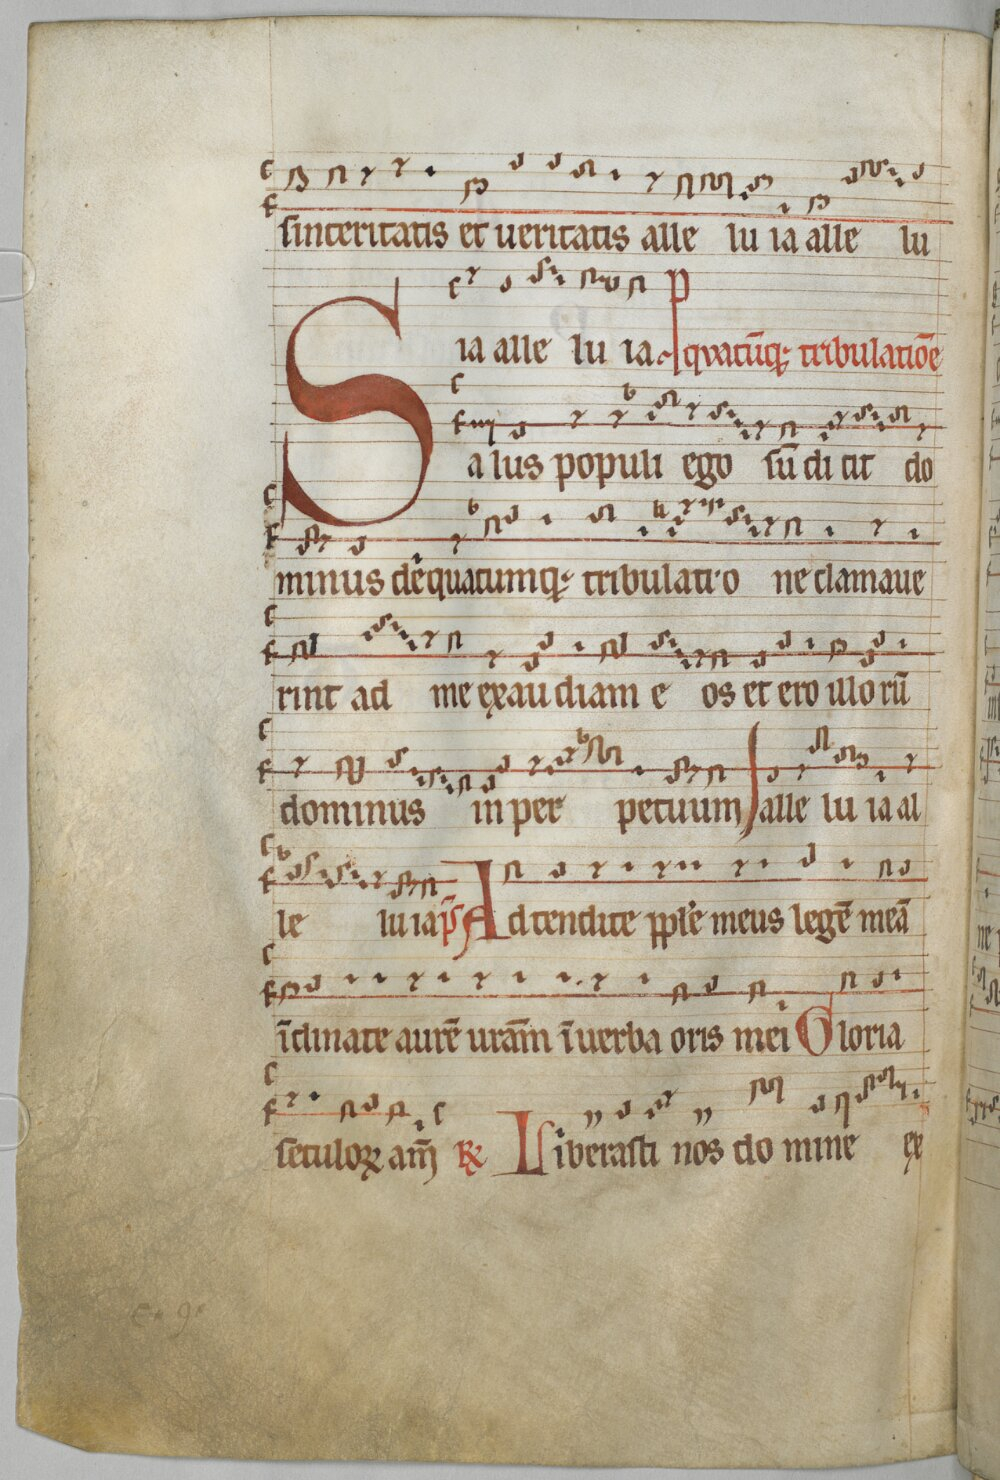 sinceritatis et ueritatis alle lu ia alle lu
ia alle lu ia. P quacūq; tribulatiōe
Salus populi ego sū dicit do
minus dequacumq; tribulatio ne clamaue
rint ad me exaudiam eos et ero illorū
dominus in perpetuum alle lu ia al
le lu ia p̄s Adtendite pple meus legē meā
īclinate aurē urām ī uerba oris mei Gloria
seculoꝝ am̄ ℟ Liberasti nos domine ex